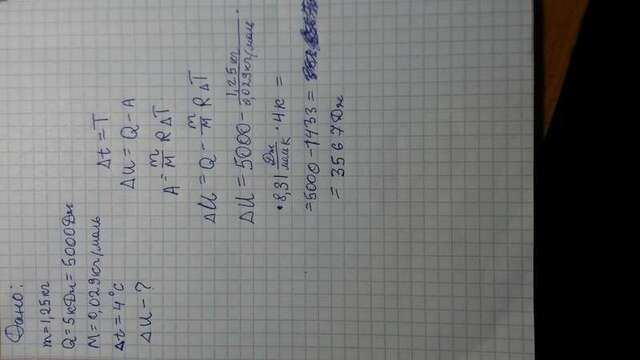 Дано:
m=1,25кг
Q=5кДж=5000Дж
M=0,029кг/моль
Δt=4°C
ΔU-?
Δt=T
ΔU=Q-A
A=m/M RΔT
ΔU=Q-m/M RΔT
ΔU=5000-1,25кг/0,029кг/моль·
·8,31Дж/мольК·4К=
=5000-1433=
=3567Дж